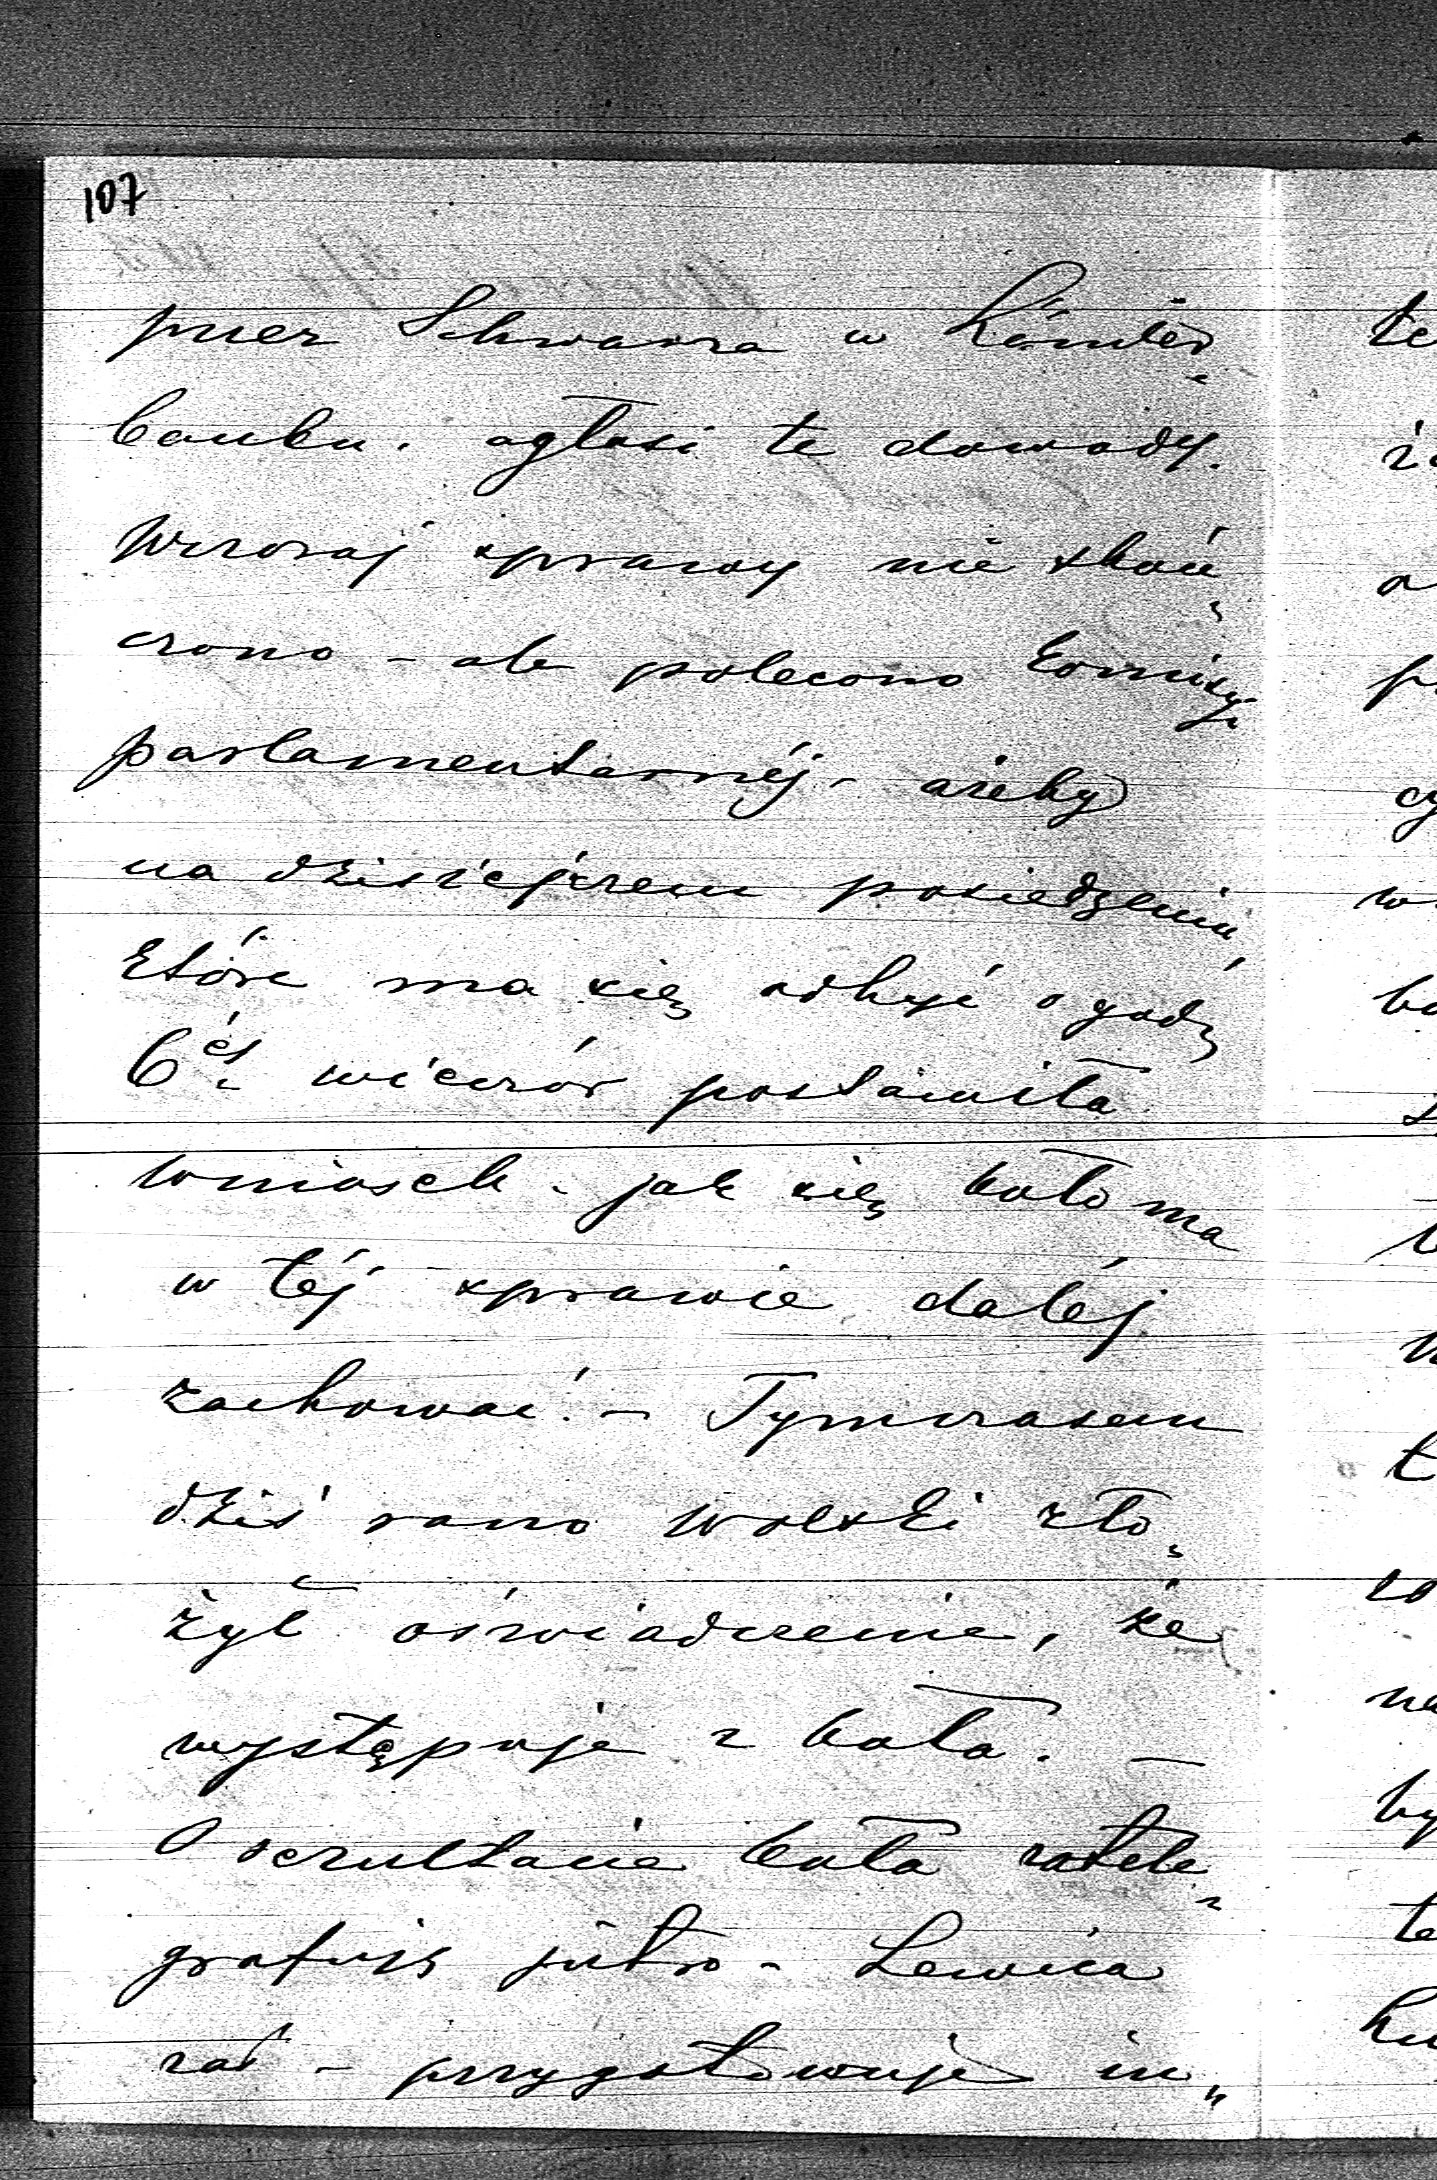 107
przez Schwarza w Länder„
banku. ogłosi te dowody.
Wczoraj sprawy nie skoń„
czono – ale polecono Komisyi
parlamentarnéj – ażeby
na dzisiejszem posiedzeniu,
które ma się odbyć o godz
6éj wieczór postawiła
wniosek – jak się koło ma
w téj sprawie daléj
zachować. – Tymczasem
dziś rano Wolski zło„
żył oświadczenie, że
występuje z koła. –
O rezultacie koła zatele„
grafuję jutro – Lewica
zaś – przygotowuje in„